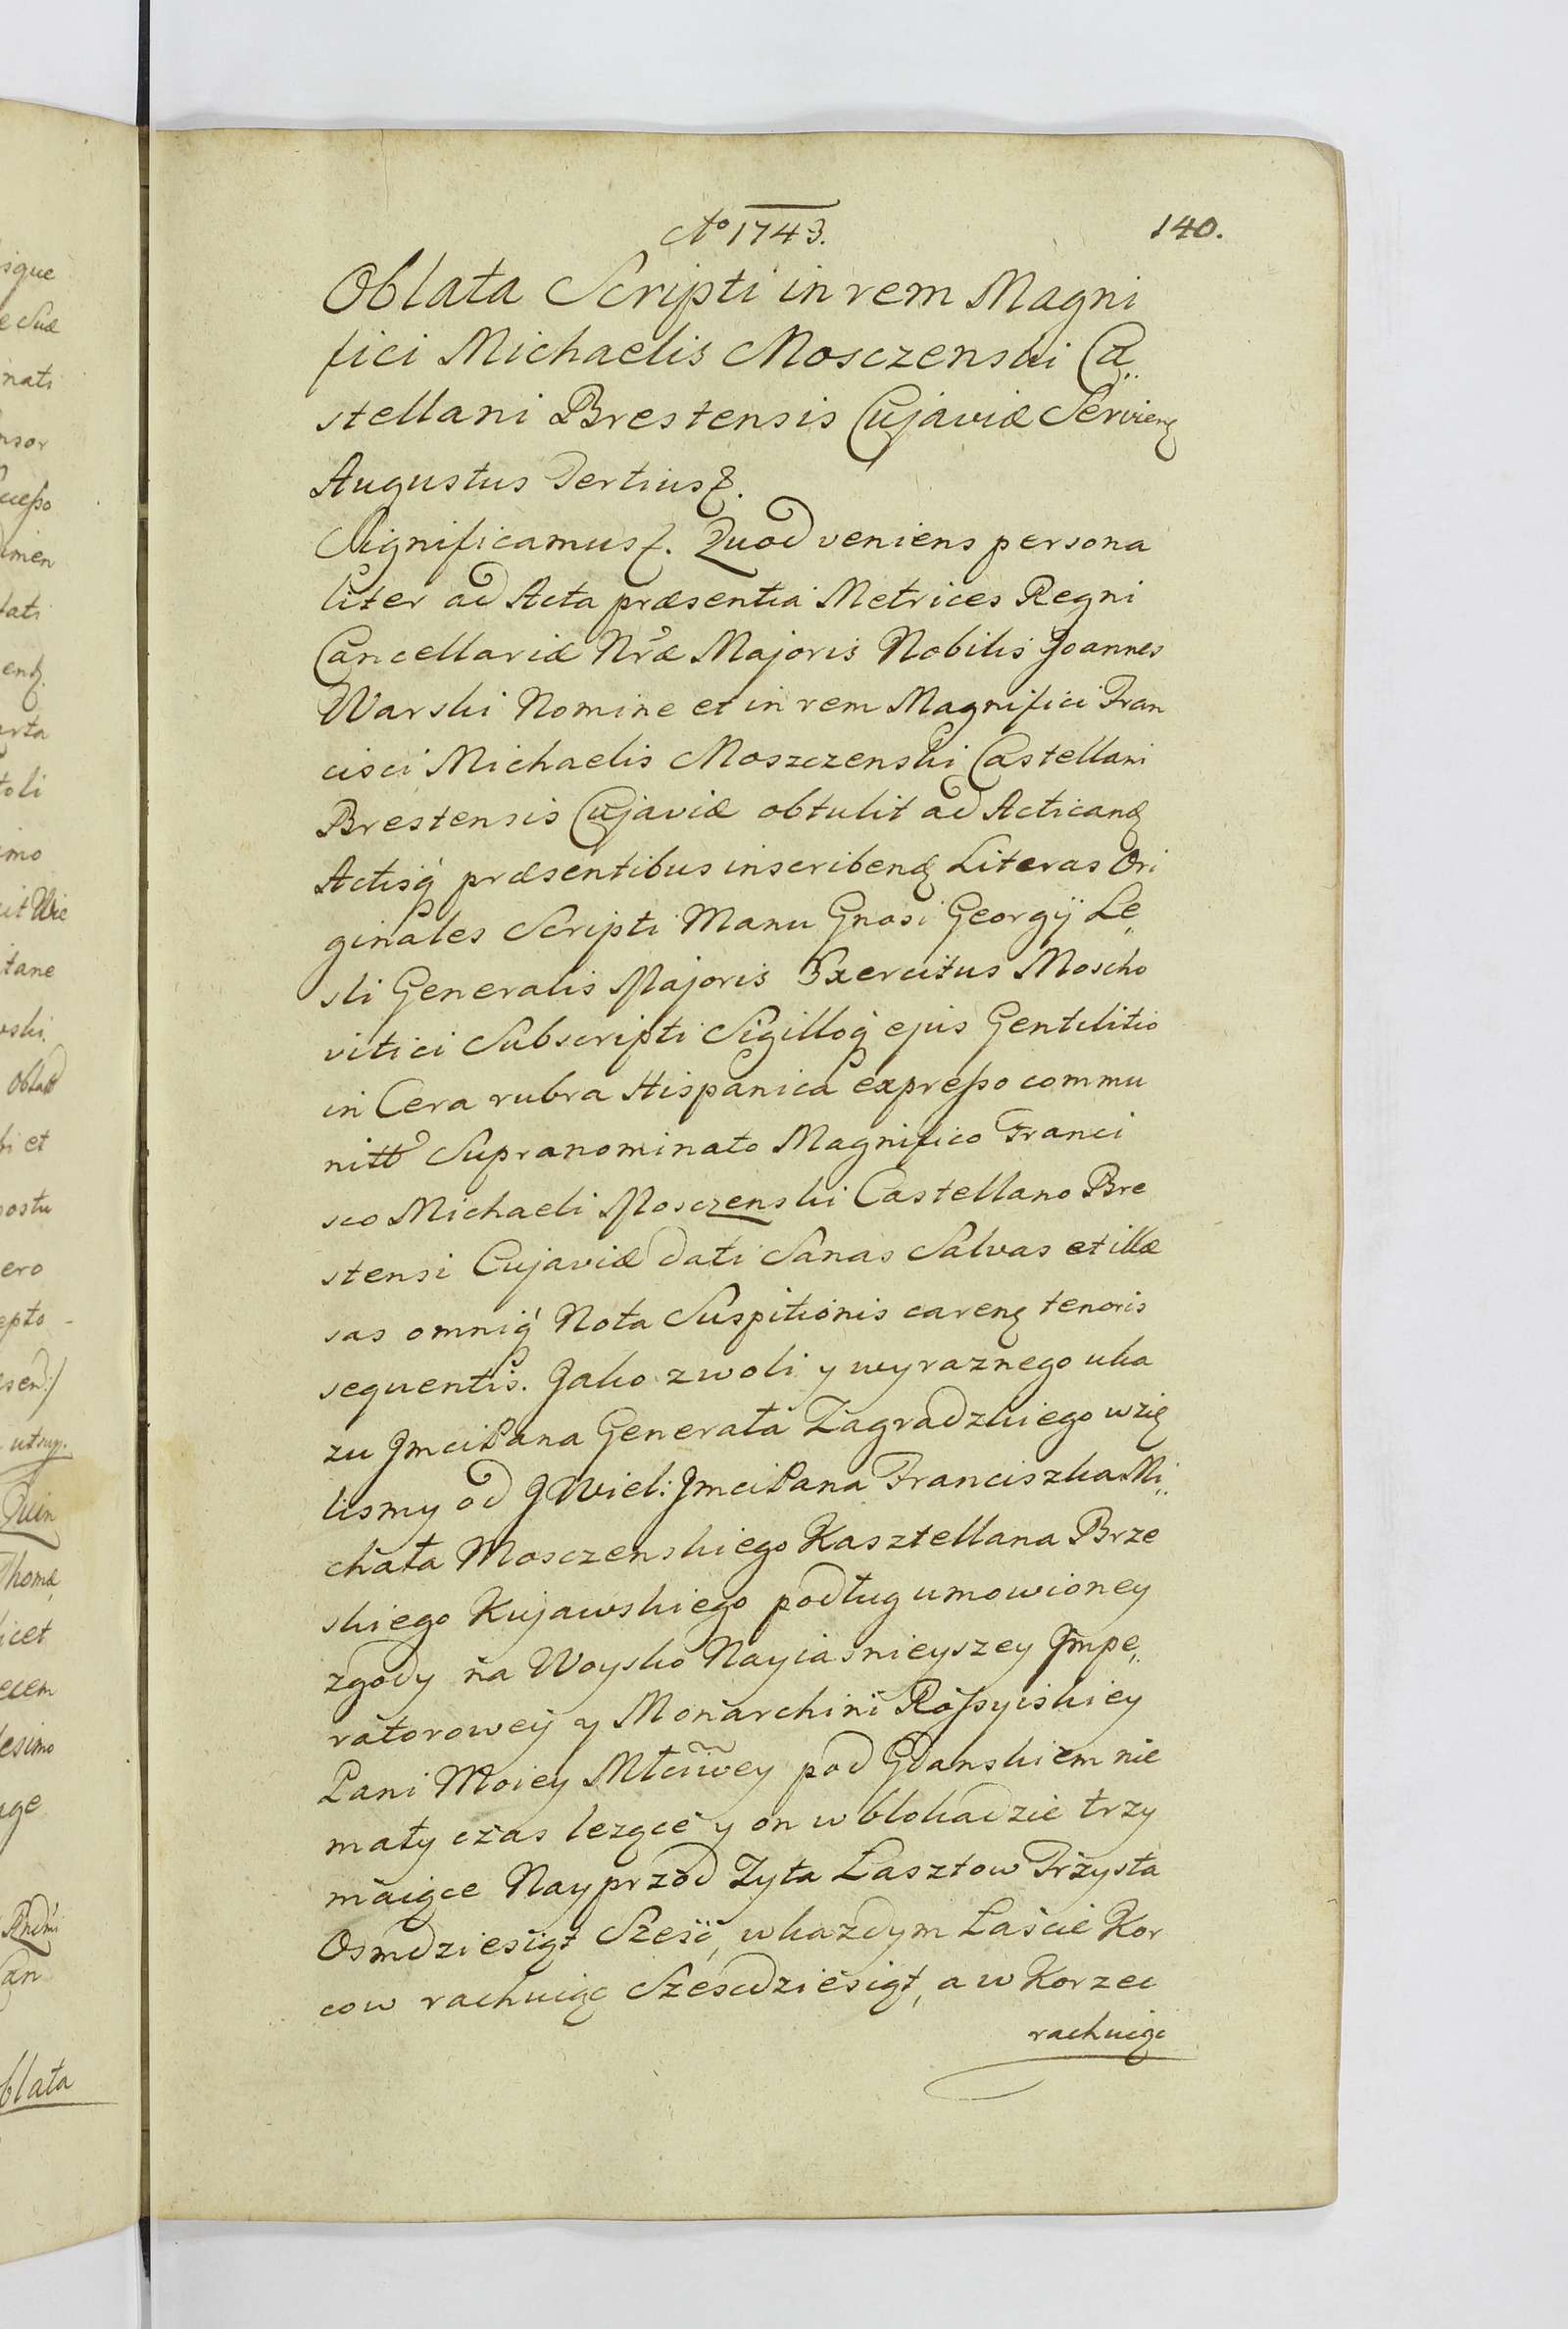 isque
e Suæ
nati
nsor
ucesso
imen
tati
arta
toli
imo
cit Wie
itane
wski.
Oblatt
hi et
postu
ero
epto -
utsup.
Quin
Thomæ
licet
ecem
desimo
age
an
blata
Aº 1743.
140.
Oblata Scripti in rem Magni
fici Michaelis Mosczenski Ca
stellani Brestensis Cujaviæ Servieng
Augustus Tertius ꝛ.
Significamus ꝛ. Quod veniens persona
liter ad Acta præsentia Metrices Regni
Cancellariæ Nræ Majoris Nobilis Joannes
Warski Nomine et in rem Magnifici Fran
cisci Michaelis Moszczenski Castellani
Brestensis Cujaviæ obtulit ad Acticanꝫ
Actisq́ præsentibus inscribenꝫ Literas Ori
ginales Scripti Manu Gnosi Georgÿ Le
sli Generalis Majoris Exercitus Moscho
vitici Subscripti Sigilloq́ ejus Gentilitio
in Cera rubra Hispanica expresso commu
nitt Supranominato Magnifico Franci
sco Michaeli Mosczenski Castellano Bre
stensi Cujaviæ dati Sanas Salvas et illæ
sas omniq́ Nota Suspitionis carenꝫ tenoris
sequentis. Jako z woli y wyraznego uka
zu Jmci Pana Generała Zagradzkiego wzię
lismy od J Wiel: Jmci Pana Franciszka Mi
chała Mosczenskiego Kasztellana Brze
skiego Kujawskiego podług umowioney
zgody na Woysko Nayiasnieyszey Jmpe
ratorowey y Monarchini Rossyiskiey
Pani Moiey Młciwey pod Gdanskiem nie
mały czas lezące y on w blokadzie trzy
maiące Nayprzod Zyta Łasztow Trzysta
Osmdziesiąt Sześć, w kazdym Łaście Kor
cow rachuiąc Szescdziesiąt, a w Korzec
rachuiąc